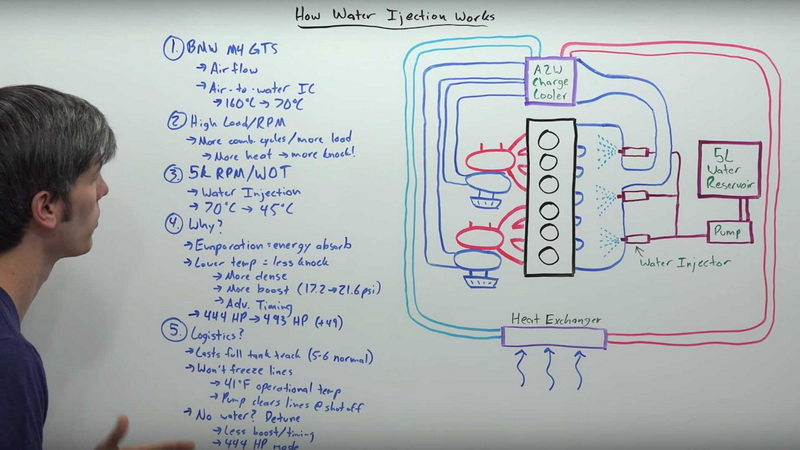 How Water Injection Works
1. BMW M4 GTS
→ Airflow
→ Air-to-water IC
→ 160°C → 70°C
2. High Load/RPM
→ More comb. cycles/more load
→ More heat → more knock!
3. 5k RPM/WOT
→ Water Injection
→ 70°C → 45°C
4. Why?
→ Evaporation = energy absorb
→ Lower temp = less knock
→ More dense
→ More boost (17.2 → 21.6 psi)
→ Adv. Timing
→ 444 HP → 493 HP (+49)
5. Logistics?
→ Lasts full tank track (5-6 normal)
→ Won't freeze lines
→ 41°F operational temp
→ Pump clears lines @ shutoff
→ No water? Detune
→ Less boost/timing
→ 444 HP mode
A2W
Charge
Cooler
5L
Water
Reservoir
Pump
Water Injector
Heat Exchanger